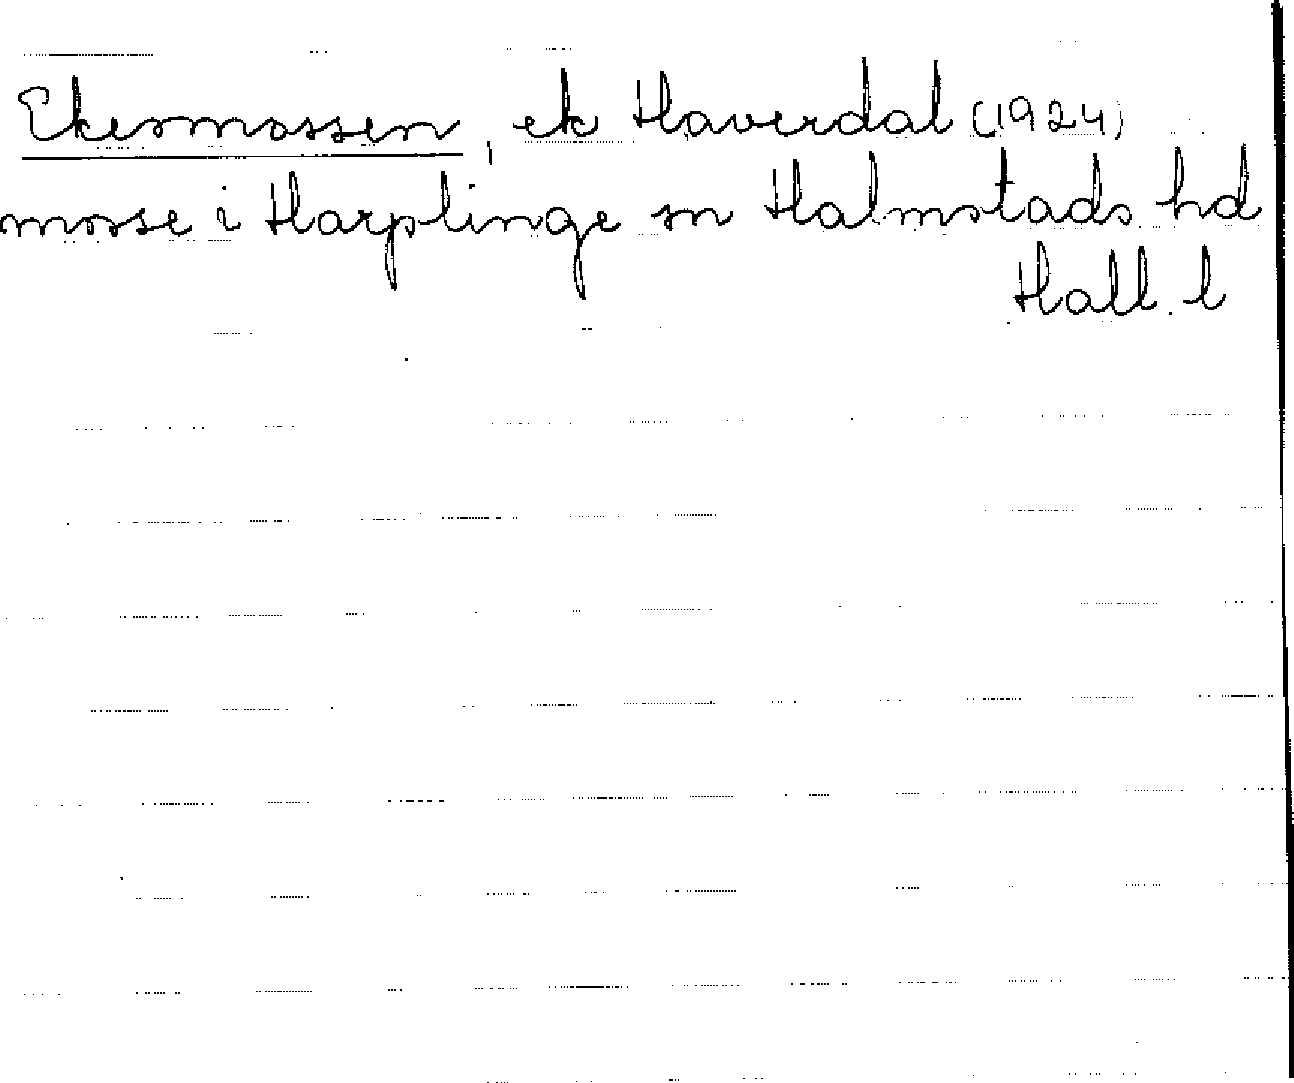 Ekesmossen, ek Haverdal (1924)
mosse i Harplinge sn Halmstads hd
Hall. l